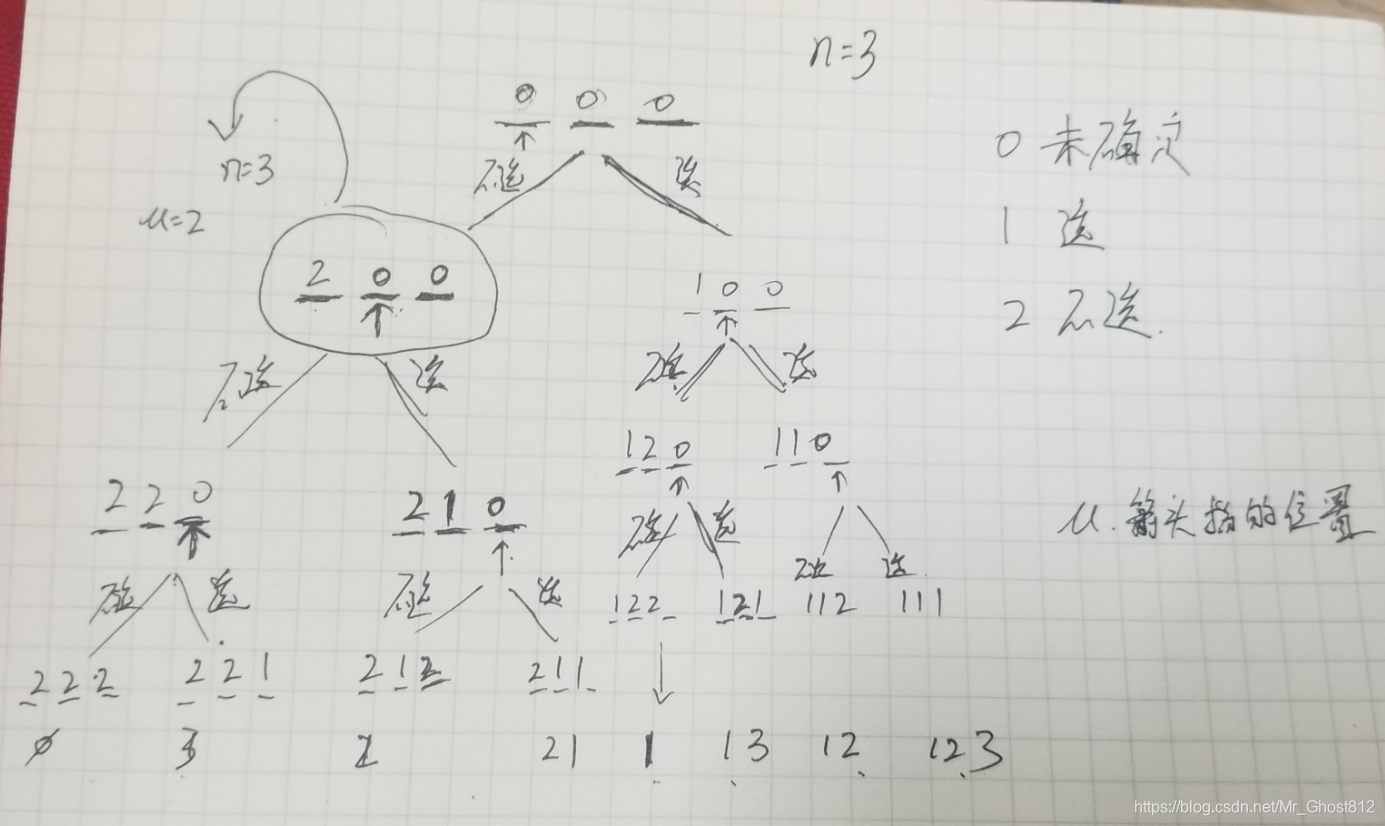 n=3
0 0 0
0 未确定
不选 选
n=3
1 选
u=2
2 0 0
1 0 0
2 不选.
不选 选
不选 选
1 2 0
1 1 0
2 2 0
2 1 0
不选 选
不选 选
u. 箭头指的位置
不选 选
不选 选
122 121 112 111
2 2 2
2 2 1
2 1 2
2 1 1
ø 3 2 21 1 13 12 123
https://blog.csdn.net/Mr_Ghost812